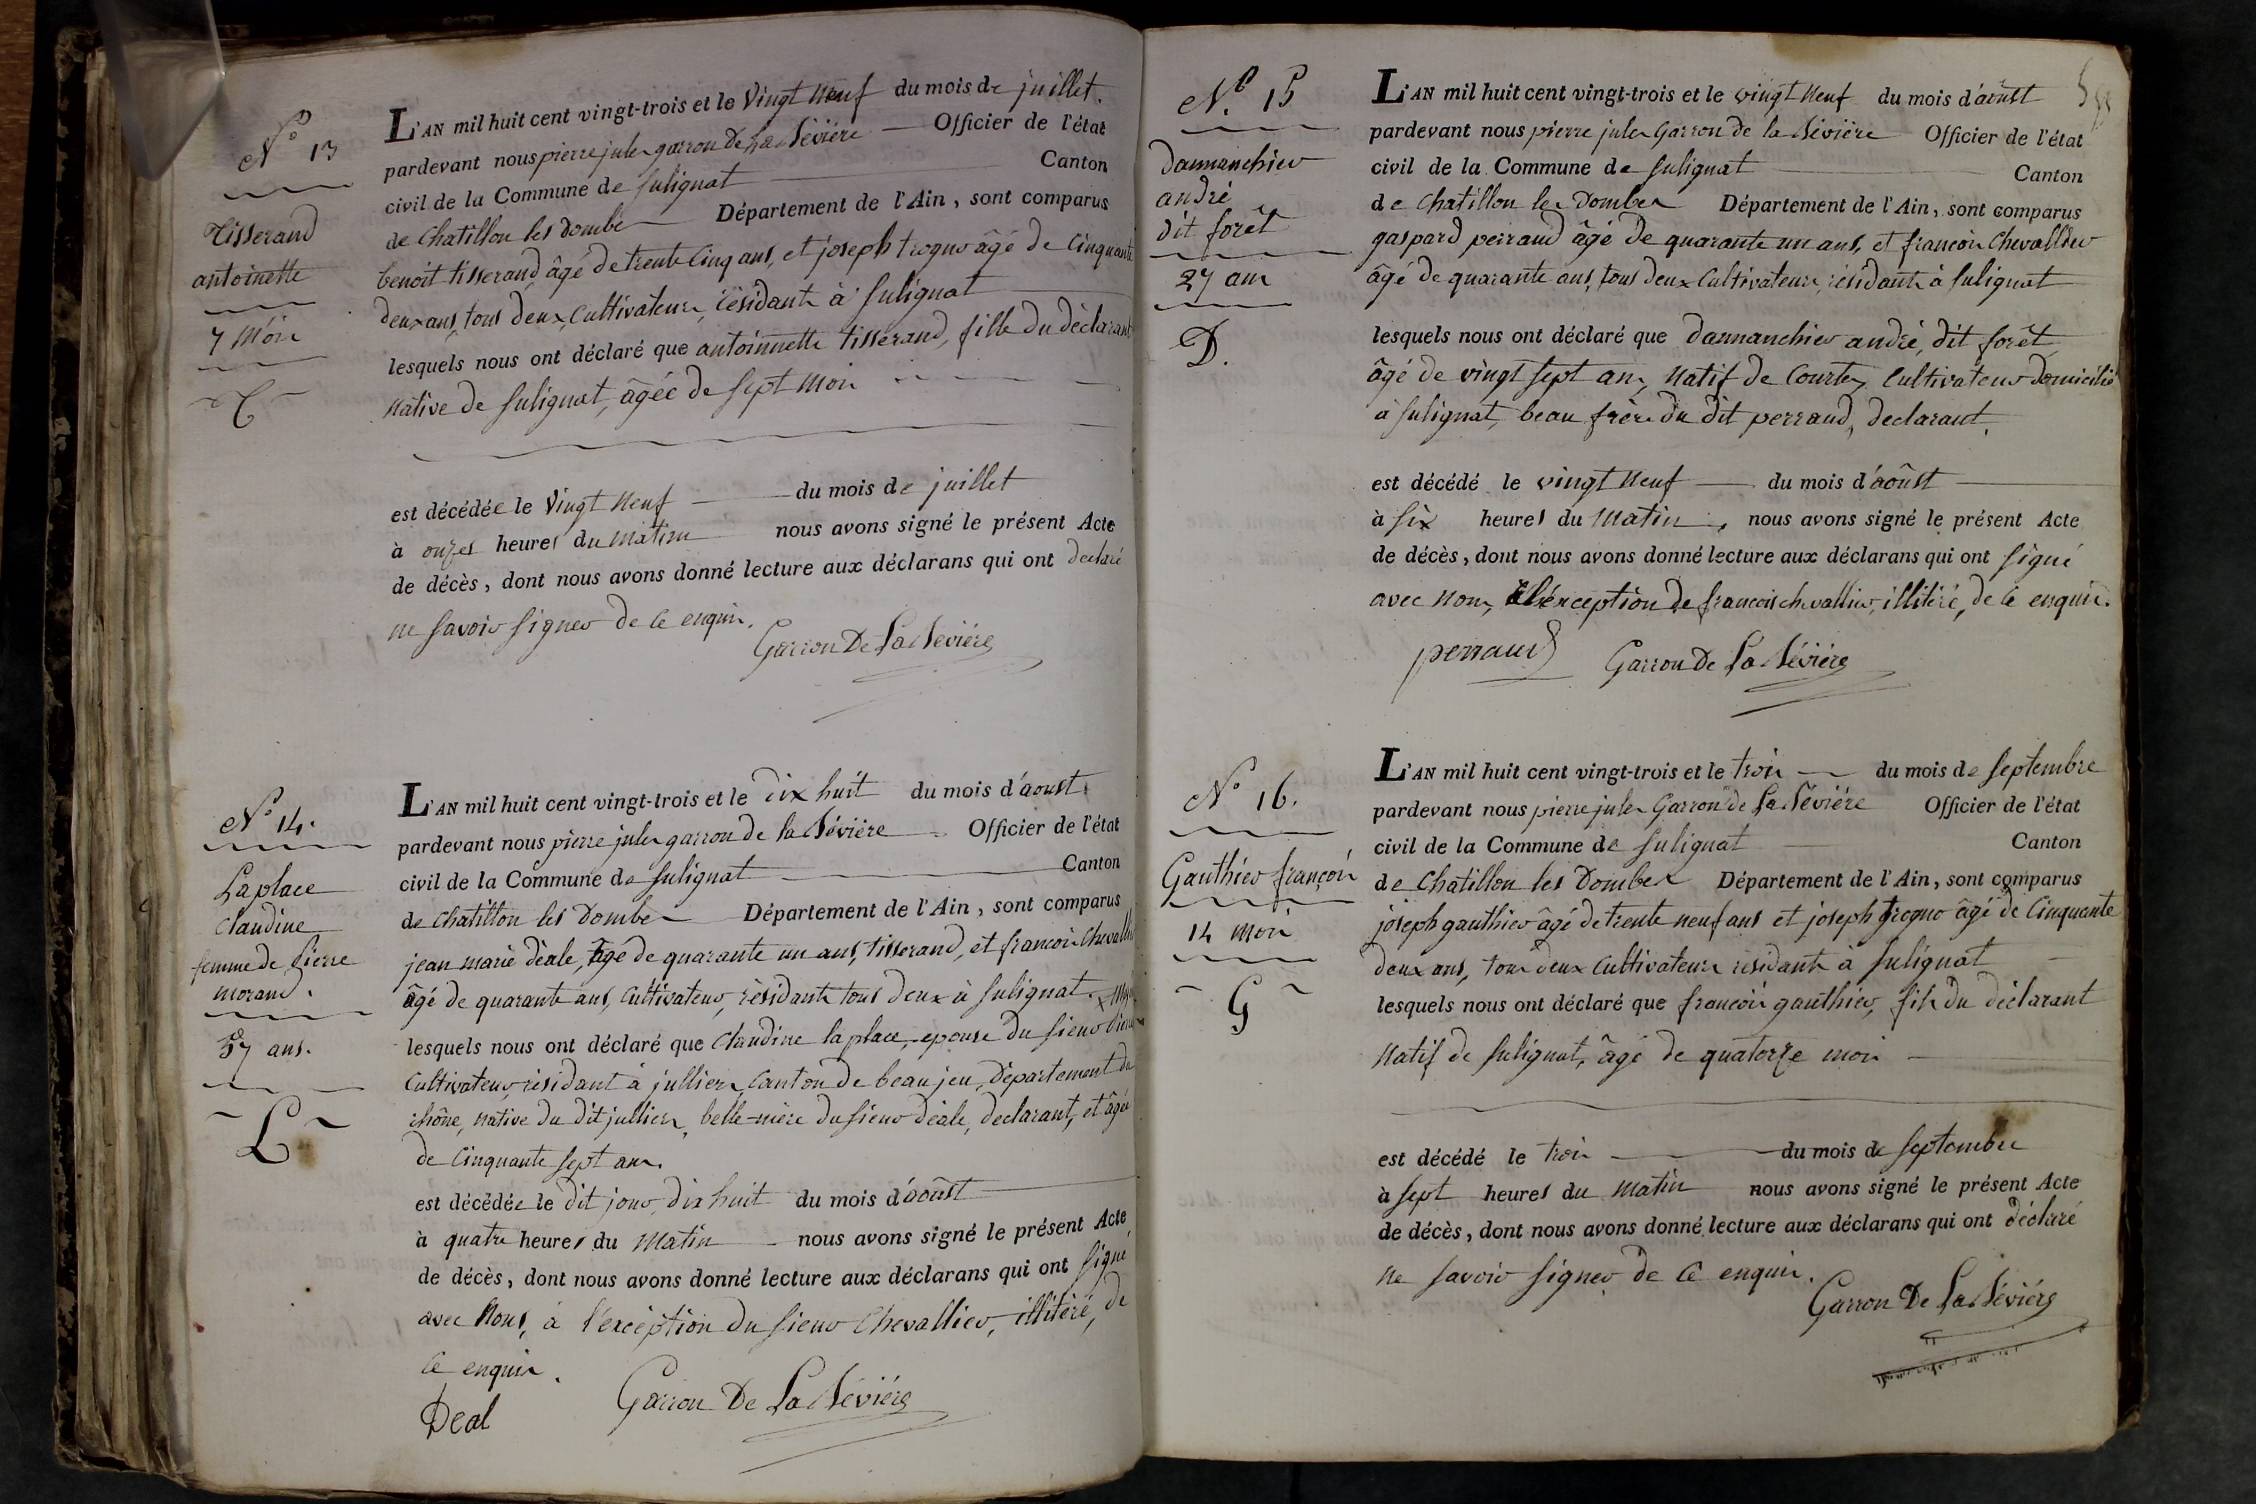 N.° 13
Tisserand
antoinette
7 Mois
T
L'AN mil huit cent vingt-trois et le Vingt Neuf du mois de juillet.
pardevant nous pierre jules garron de La Sévière Officier de l'état
civil de la Commune de Sulignat Canton
de Chatillon les Dombe Département de l'Ain, sont comparus
benoit tisserand, âgé de trente Cinq ans, et joseph trogno âgé de Cinquante
deux ans, tous deux, Cultivateurs, résidants à Sulignat
lesquels nous ont déclaré que antoinnette tisserand, fille du déclarant
Native de Sulignat, âgée de Sept mois
est décédée le Vingt Neuf du mois de juillet
à onzes heures du Matin nous avons signé le présent Acte
de décès, dont nous avons donné lecture aux déclarans qui ont déclaré
ne Savoir Signer de Ce enquis.
Garron De La Séviére
N.° 14.
Laplace
Claudine
femme de Pierre
morand.
57 ans.
L
L'AN mil huit cent vingt-trois et le dix huit du mois d'aoust
pardevant nous pierre jules garron de la Sévière Officier de l'état
civil de la Commune de Sulignat Canton
de Chatillon les Dombes Département de l'Ain, sont comparus
jean marie déale, âgé de quarante un ans, tisserand, et francois Chevallier
âgé de quarante ans, Cultivateur, résidants tous deux à Sulignat.
lesquels nous ont déclaré que Claudine la place, epouse du Sieur
Cultivateur, résidant à jullien, Canton de beaujeu, Département du
rhône, native du dit jullien, belle-mère du Sieur déale, déclarant, et âgée
de Cinquante Sept ans.
est décédée le dit jour, dix huit du mois d'aoûst
à quatre heures du Matin nous avons signé le présent Acte
de décès, dont nous avons donné lecture aux déclarans qui ont Signé
avec Nous, à l'exception du Sieur Chevallier, illitéré, de
Ce enquis.
Deal Garron De La Séviére
N.° 15
Dannanchier
andré
dit forêt
27 ans
D.
L'AN mil huit cent vingt-trois et le vingt Neuf du mois d'aoûst
pardevant nous pierre jules Garron de la Sévière Officier de l'état
civil de la Commune de Sulignat Canton
de Chatillon les Dombes Département de l'Ain, sont comparus
gaspard perraud âgé de quarante un ans, et francois Chevallier
âgé de quarante ans, tous deux Cultivateurs, résidants à Sulignat
lesquels nous ont déclaré que Dannanchier andré, dit forêt
âgé de vingt Sept ans, Natif de Courtes, Cultivateur domicilié
à Sulignat, beau frère du dit perraud, declarant.
est décédé le vingt Neuf du mois d'aoûst
à Six heures du Matin, nous avons signé le présent Acte
de décès, dont nous avons donné lecture aux déclarans qui ont Signé
avec Nous, à l'exception de francois chevallier, illitéré, de Ce enquis.
perraud Garron De La Séviére
N.° 16.
Gauthier françois
14 Mois
G
L'AN mil huit cent vingt-trois et le trois du mois de Septembre
pardevant nous pierre jules Garron de La Séviére Officier de l'état
civil de la Commune de Sulignat Canton
de Chatillon les Dombes Département de l'Ain, sont comparus
joseph gauthier âgé de trente neuf ans et joseph trogno âgé de Cinquante
deux ans, tous deux Cultivateurs résidants à Sulignat
lesquels nous ont déclaré que francois gauthier, fils du déclarant
Natif de Sulignat, âgé de quatorze mois
est décédé le trois du mois de Septembre
à Sept heures du Matin nous avons signé le présent Acte
de décès, dont nous avons donné lecture aux déclarans qui ont déclaré
ne Savoir Signer de Ce enquis.
Garron De La Séviére